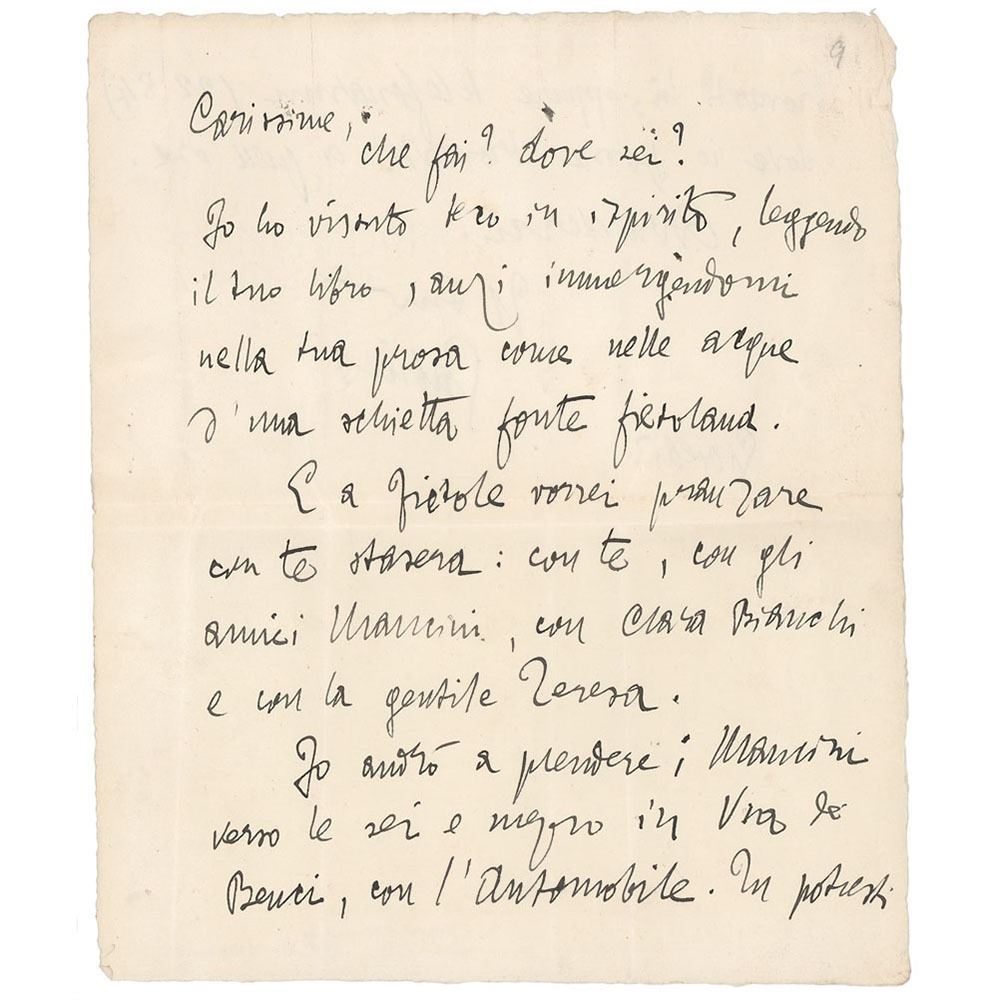 9
Carissime,
che fai? dove sei?
Io ho vissuto teco in ispirito, leggendo
il tuo libro, anzi immergendomi
nella tua prosa come nelle acque
d'una schietta fonte fiesolana.
E a Fiesole vorrei pranzare
con te stasera: con te, con gli
amici Mancini, con Clara Bianchi
e con la gentile Teresa.
Io andrò a prendere i Mancini
verso le sei e mezzo in Via de
Benci, con l'Automobile. Tu potresti